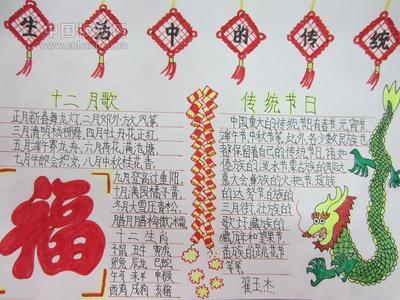 生活中的传统
十二月歌
正月新春舞龙灯,二月郊外放风筝
三月清明杨柳绿,四月牡丹花正红
五月端午赛龙舟,六月荷花满池塘
七月牛郎会织女,八月中秋桂花香,
九月登高过重阳,
十月满园橘子黄,
冬月大雪压青松,
十二生肖
子鼠 丑牛 寅虎
卯兔 辰龙 巳蛇
午马 未羊 申猴
酉鸡 戌狗 亥猪
福
传统节日
中国重大的传统节日有春节、元宵节
端午节、中秋节等,此外,各少数民族也
都保留着自己的传统节日,诸如
傣族的泼水节、蒙古族的那达
慕大会、彝族的火把节、瑶族
的达努节、白族的
三月街、壮族的
歌圩、藏族的
藏历年和望果节、
苗族的跳花节
等等。
翟玉杰